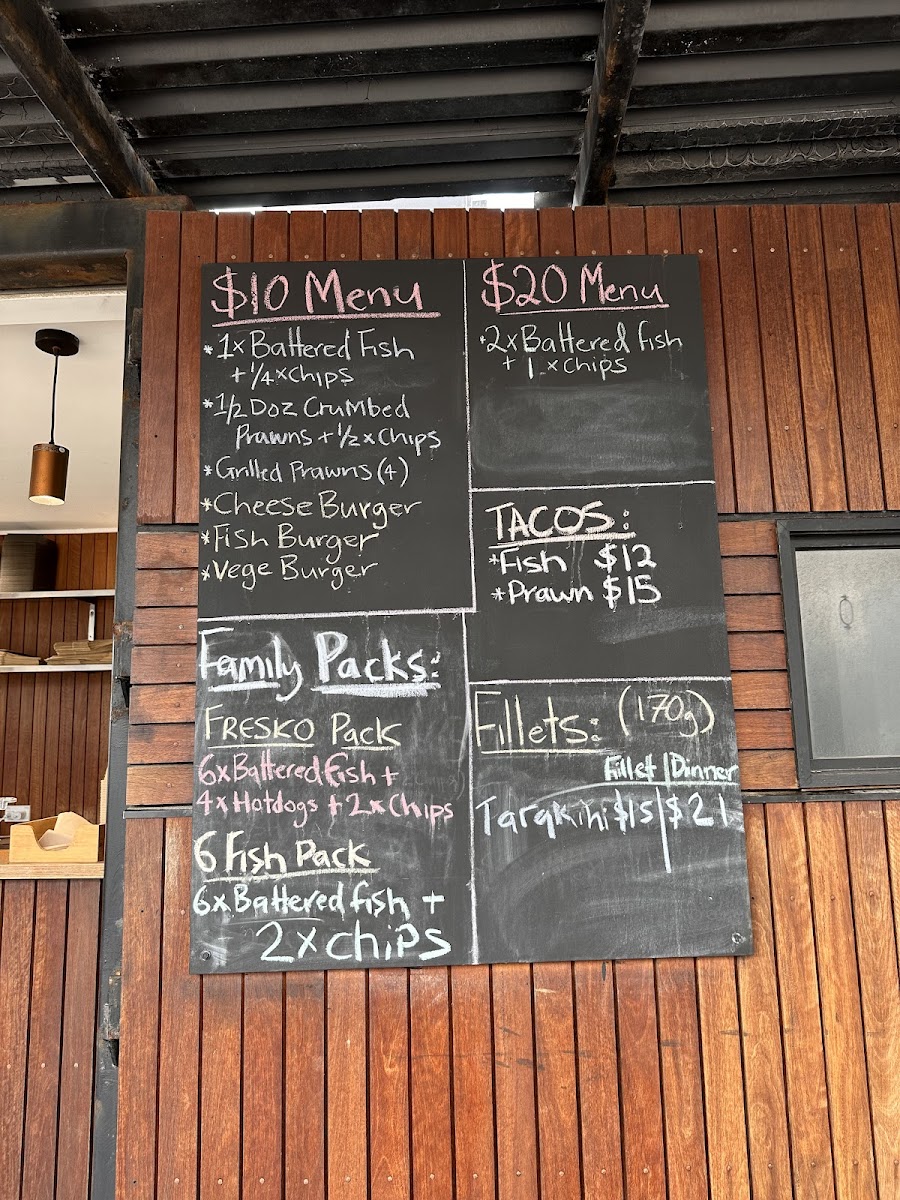 $10 Menu
*1x Battered Fish
+ 1/4 x chips
*1/2 Doz Crumbed
Prawns + 1/2 x Chips
*Grilled Prawns (4)
*Cheese Burger
*Fish Burger
*Vege Burger
$20 Menu
*2x Battered fish
+ 1 x chips
TACOS:
*Fish $12
*Prawn $15
Family Packs:
FRESKO Pack
6x Battered Fish +
4x Hotdogs + 2x Chips
6 Fish Pack
6x Battered fish +
2x chips
Fillets: (170g)
Fillet | Dinner
Tarakihi $15 | $21